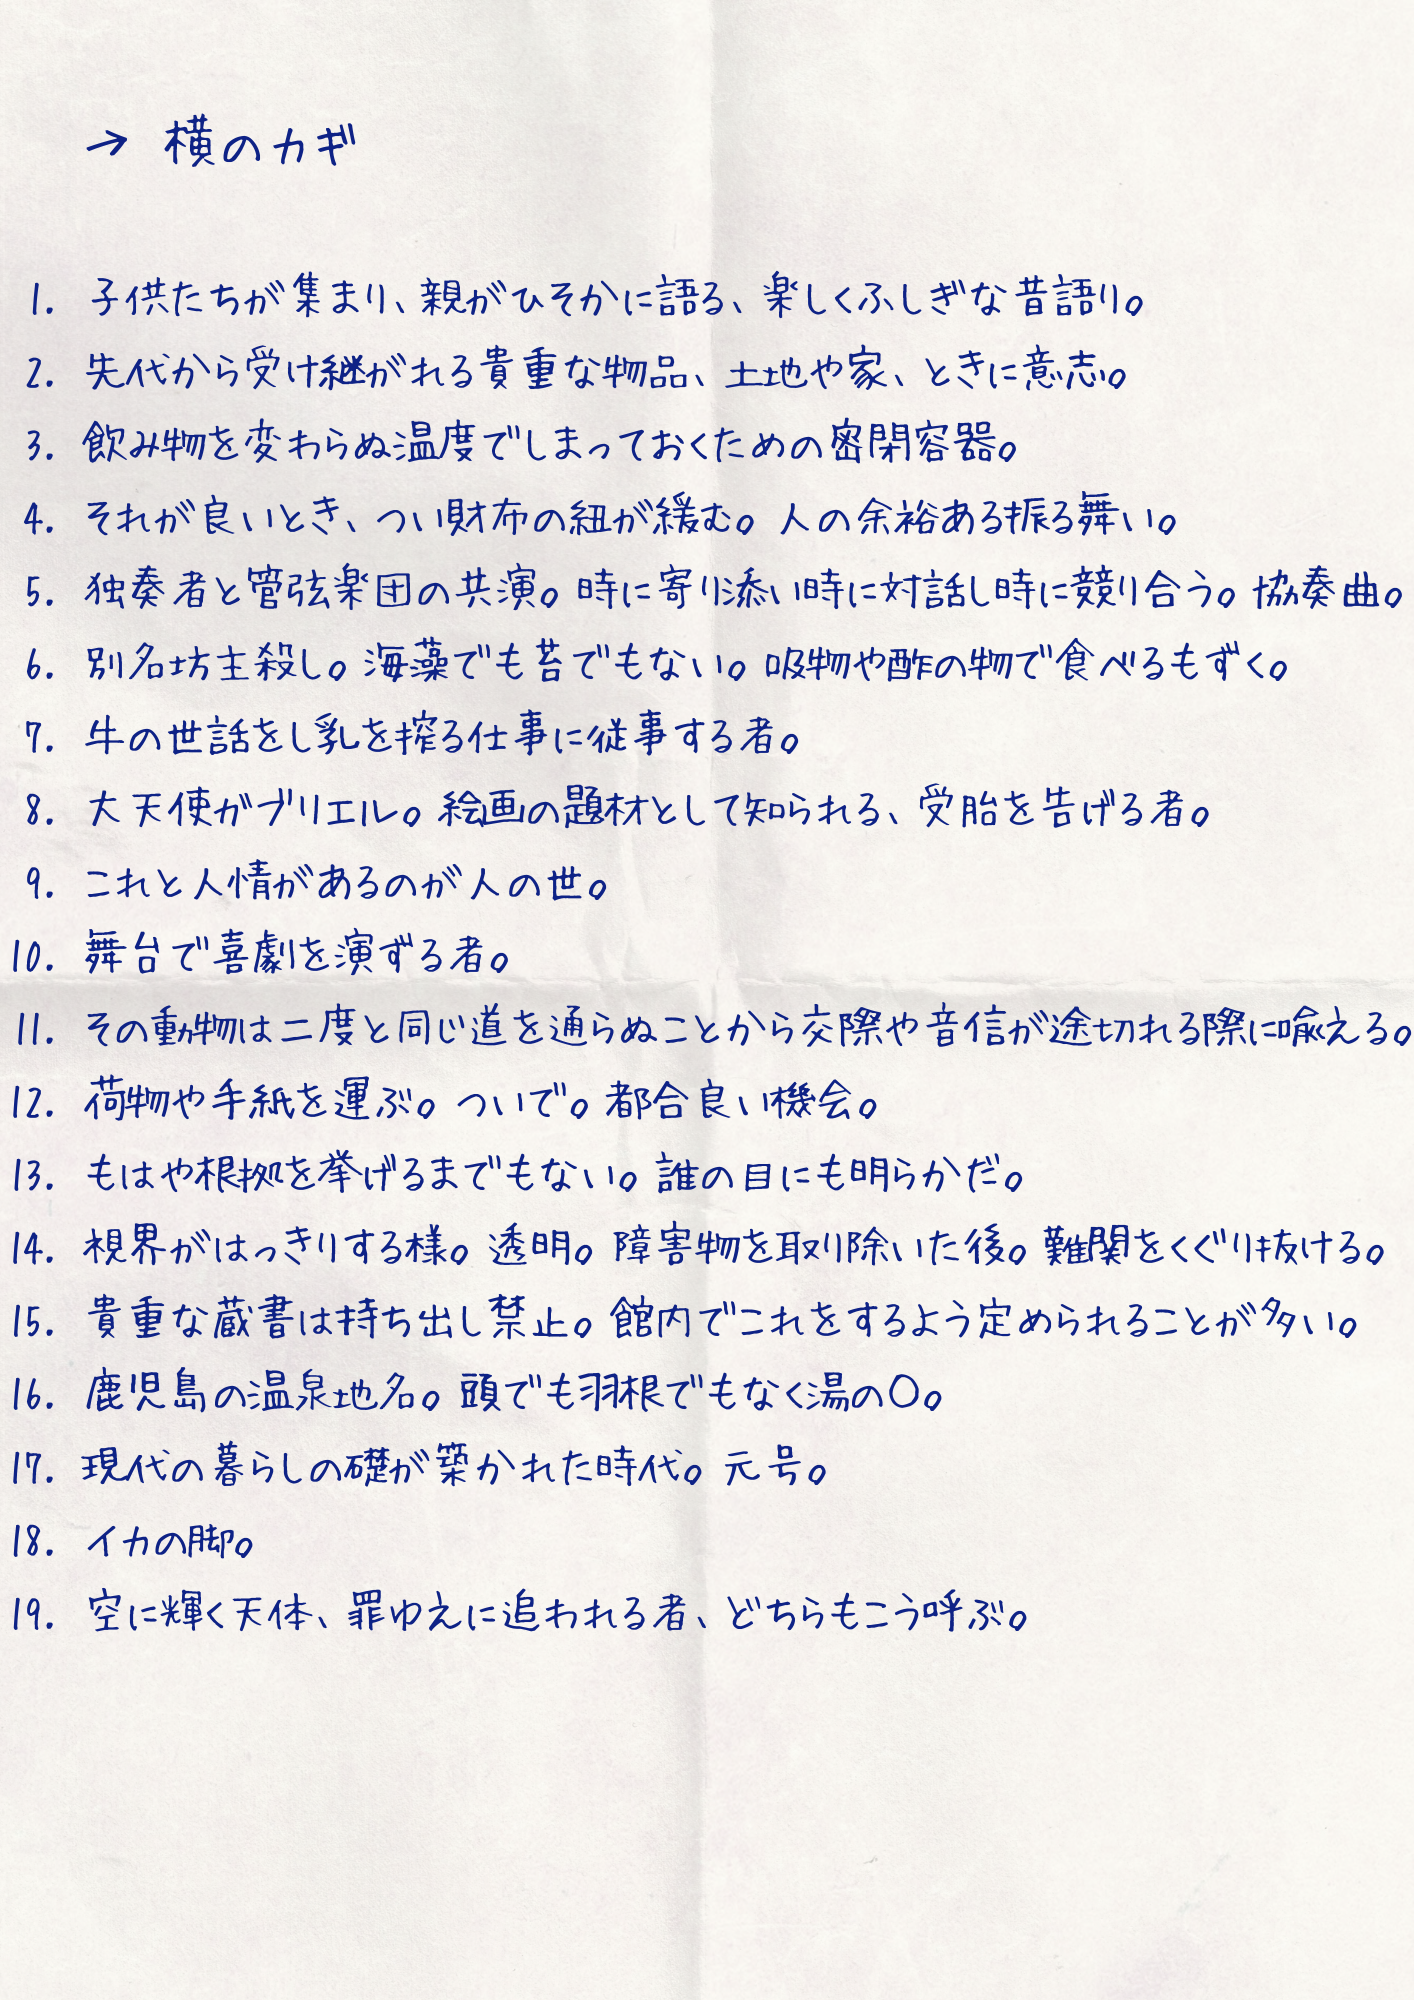 → 横のカギ
1. 子供たちが集まり、親がひそかに語る、楽しくふしぎな昔語り。
2. 先代から受け継がれる貴重な物品、土地や家、ときに意志。
3. 飲み物を変わらぬ温度でしまっておくための密閉容器。
4. それが良いとき、つい財布の紐が緩む。人の余裕ある振る舞い。
5. 独奏者と管弦楽団の共演。時に寄り添い時に対話し時に競り合う。協奏曲。
6. 別名坊主殺し。海藻でも苔でもない。吸物や酢の物で食べるもずく。
7. 牛の世話をし乳を搾る仕事に従事する者。
8. 大天使ガブリエル。絵画の題材として知られる、受胎を告げる者。
9. これと人情があるのが人の世。
10. 舞台で喜劇を演ずる者。
11. その動物は二度と同じ道を通らぬことから交際や音信が途切れる際に喩える。
12. 荷物や手紙を運ぶ。ついで。都合良い機会。
13. もはや根拠を挙げるまでもない。誰の目にも明らかだ。
14. 視界がはっきりする様。透明。障害物を取り除いた後。難関をくぐり抜ける。
15. 貴重な蔵書は持ち出し禁止。館内でこれをするよう定められることが多い。
16. 鹿児島の温泉地名。頭でも羽根でもなく湯の〇。
17. 現代の暮らしの礎が築かれた時代。元号。
18. イカの脚。
19. 空に輝く天体、罪ゆえに追われる者、どちらもこう呼ぶ。